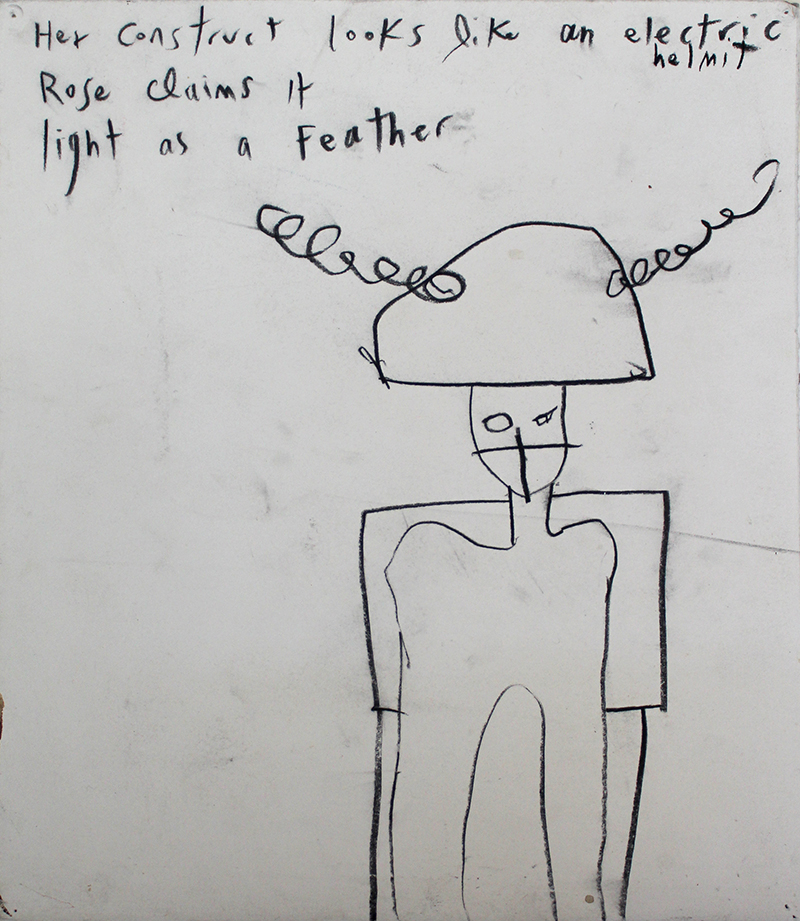 Her construct looks like an electric
helmit
Rose claims it
light as a Feather